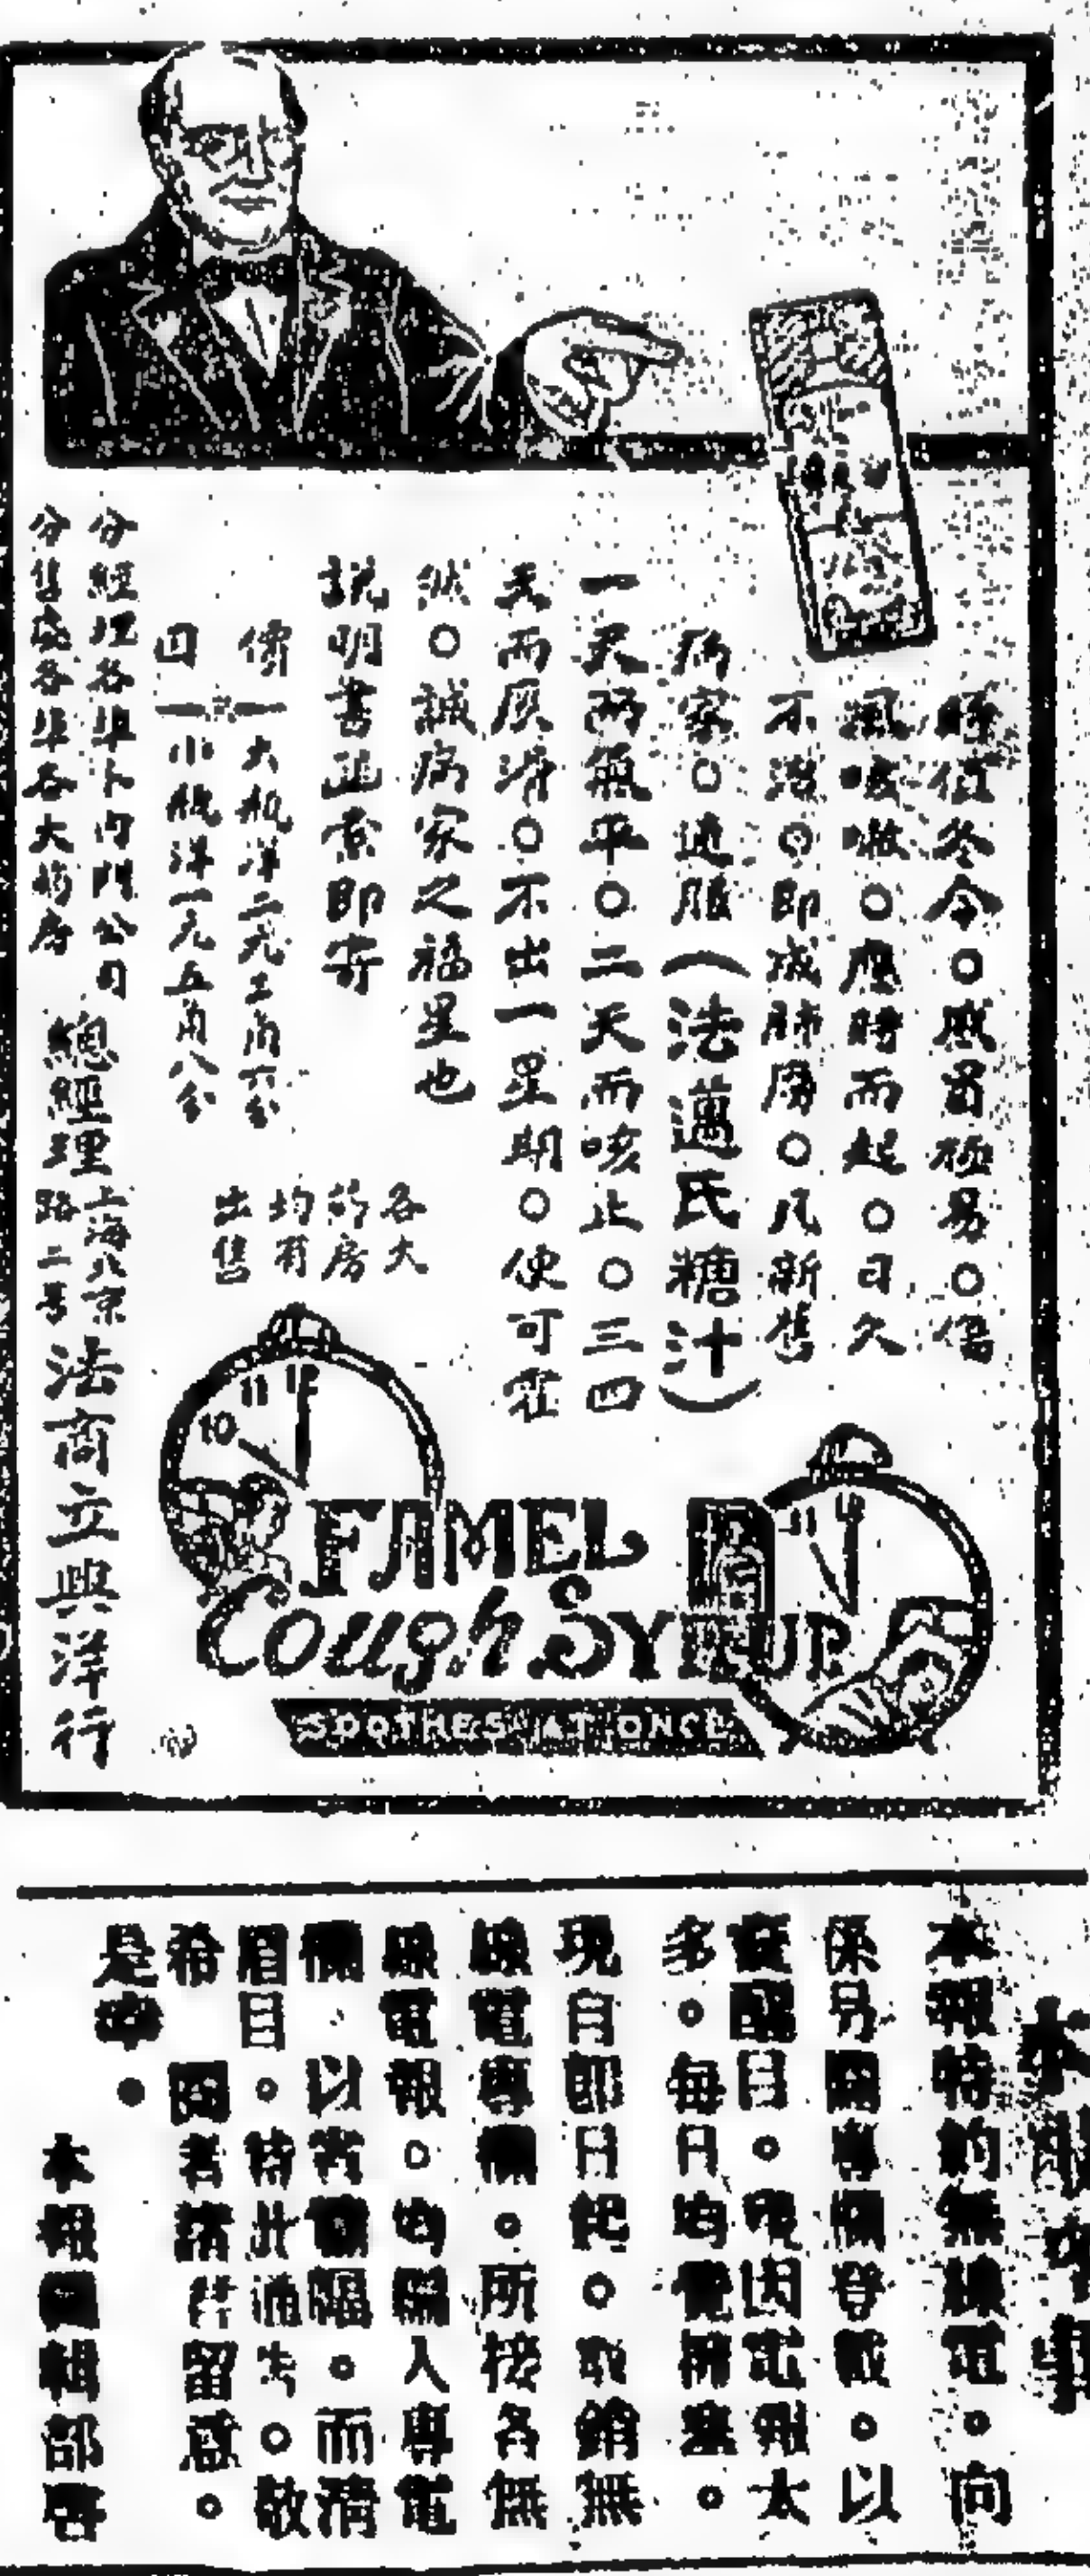 時值冬令○感冒極易○傷
風咳嗽○應時而起○日久
不治○即成肺癆○凡新舊
病家○速服（法邁氏糖汁）
一天而氣平○二天而咳止○三四
天而痰消○不出一星期○便可霍
然○誠病家之福星也
說明書函索即寄
價 大瓶洋二元二角六分
目 小瓶洋一元五角八分
各大
葯房
均有
出售
分經理各埠卜內門公司
分售處各埠各大葯房
總經理
上海北京
路二號
法商立興洋行
10 11 12
FAMEL
Cough SYRUP
SOOTHES AT ONCE
11 12
本報特約無線電。向
係另闢專欄登載。以
資醒目。現因電報太
多。每日均覺擠塞。
現自即日起。取銷無
線電專欄。所接各無
線電報。均編入專電
欄 以省篇幅。而清
眉目。特此通告。敬
希 閱者諸君留意。
是幸
本報編輯部啓